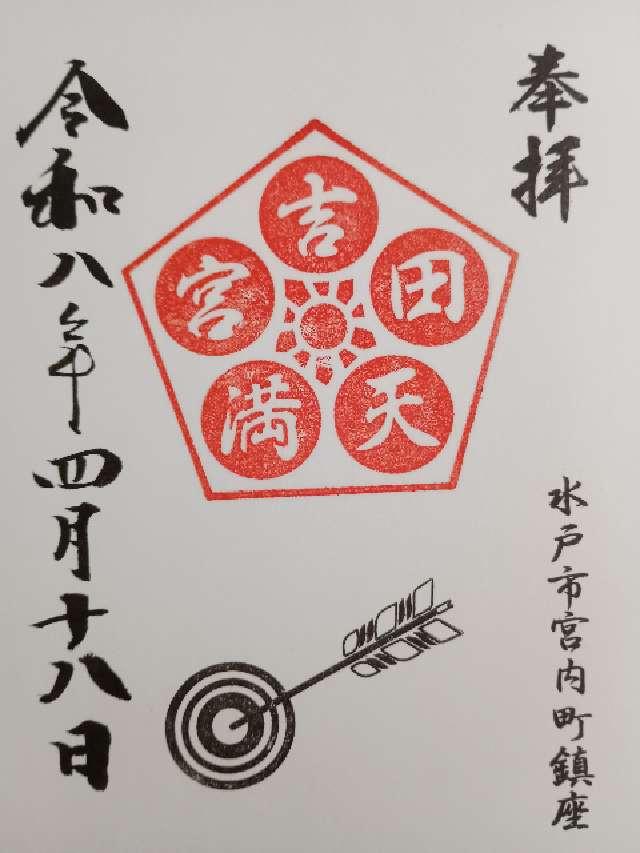 奉拝
水戸市宮内町鎮座
吉田天満宮
令和八年四月十八日